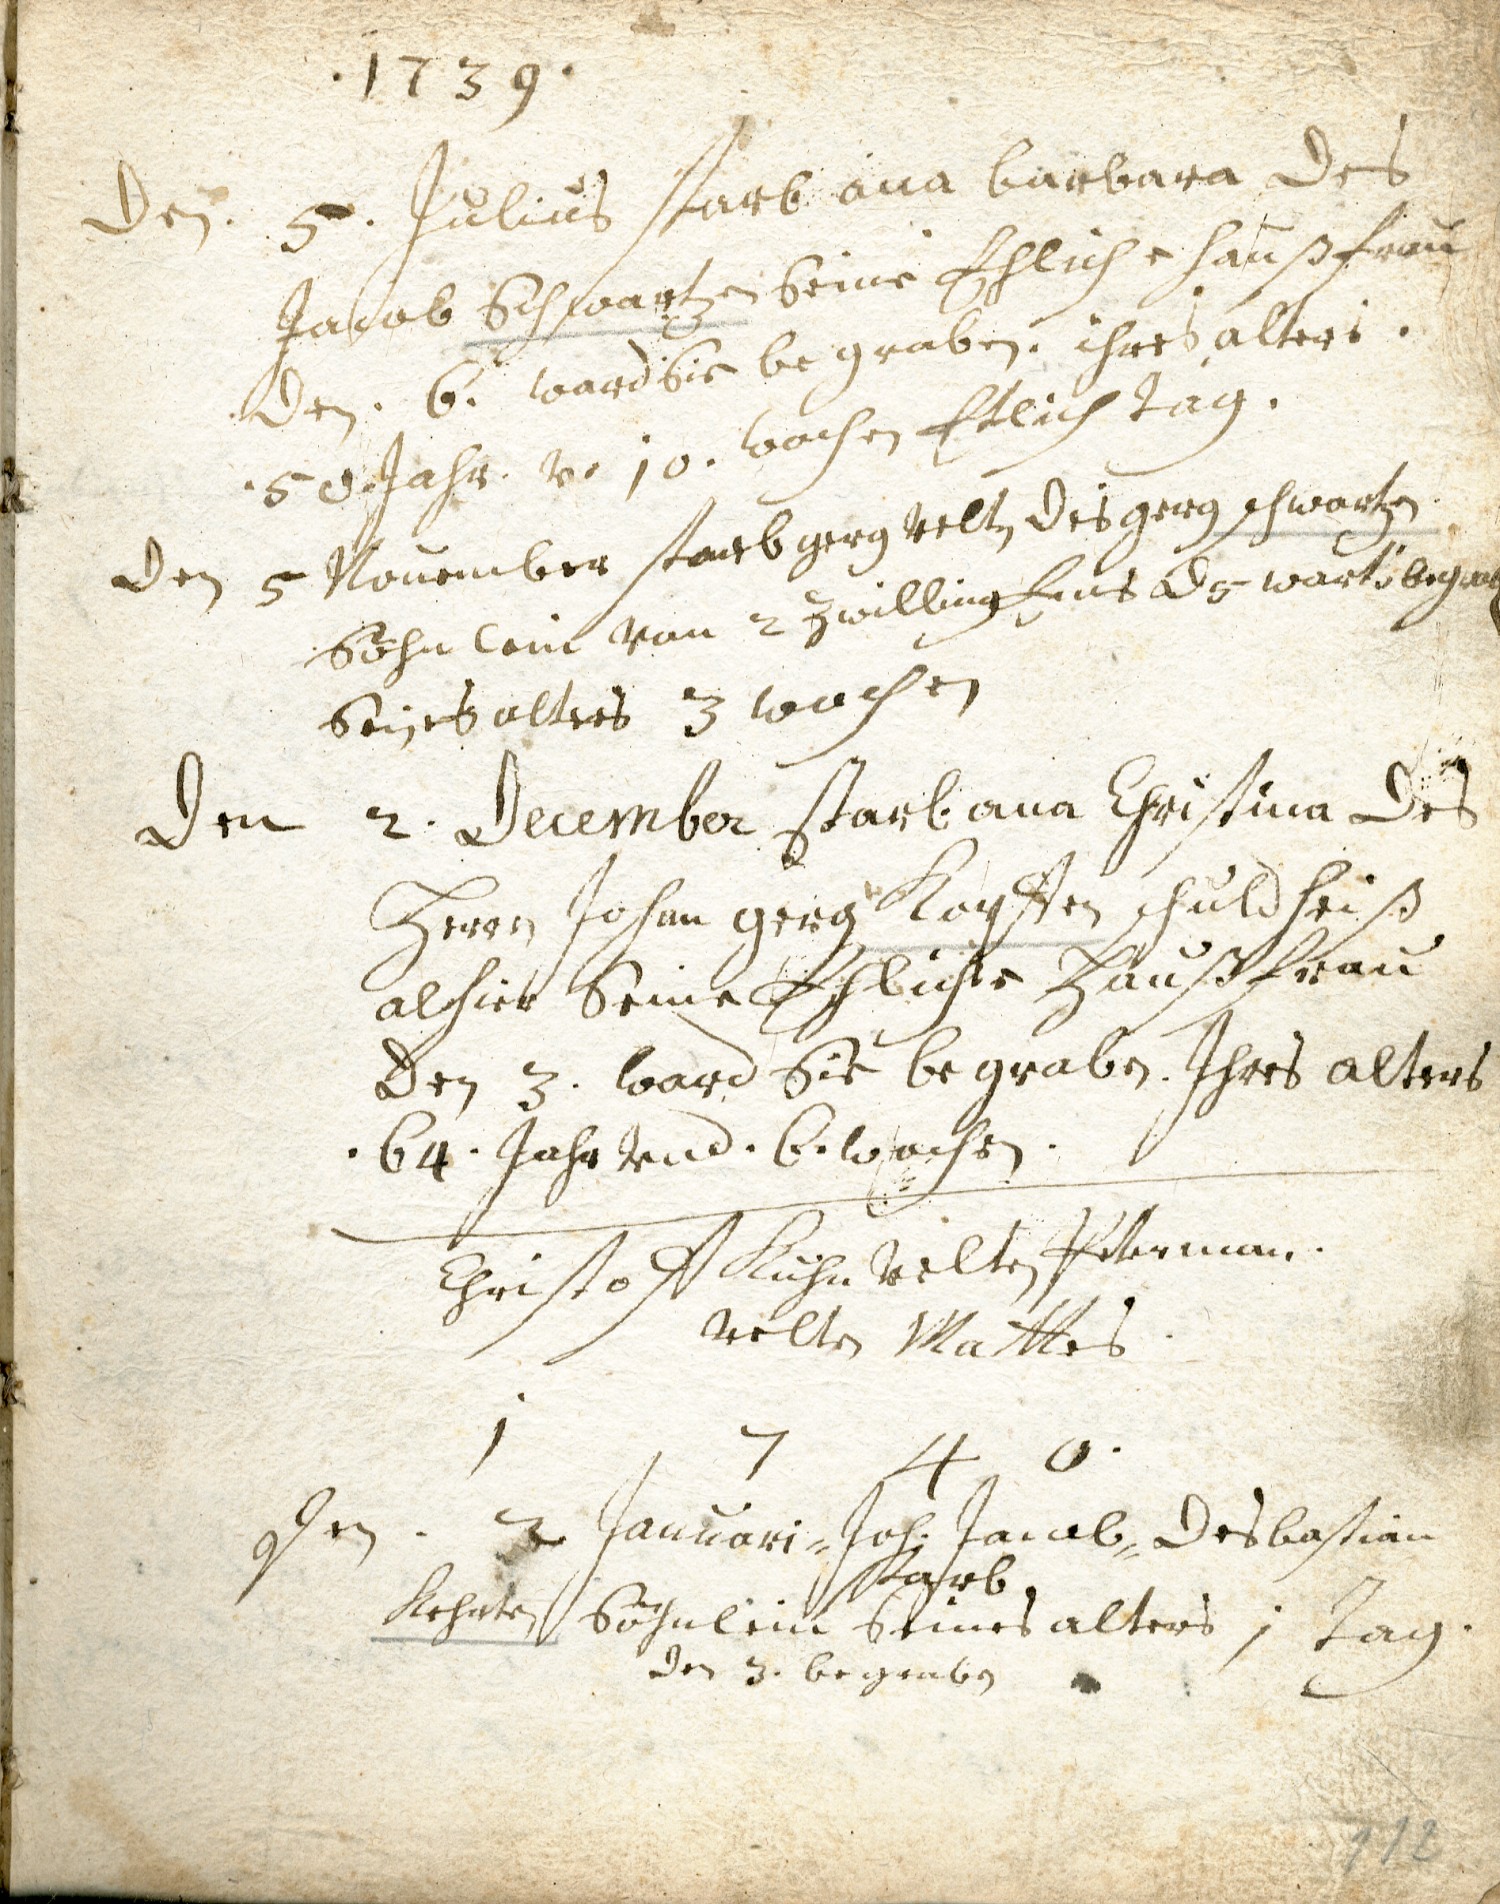 ·1739·
Den. 5. Julius starb ana barbara Des
Jacob Schwartzen Seine Ehliche haußfrau
Den. 6. ward Sie begraben. ihres alters.
·50 Jahr. v. 10. wochen Etlich tag.
Den 5 November starb gerg velt Des gerg schwartzen
Söhnlein von 2 Zwilling Eins D 5 wart begrab
Seines alters 3 wochen
Den 2. December starb ana Christina Des
Herrn Johan gerg schuldheiß
alhier Seine Ehliche Haußfrau
Den 3. ward Sie begraben. Ihres alters
·64· Jahr vnd. 6. wochen.
Christoff Kuhn velten Peterman.
velten Mattes
1 7 4 0.
Den. 2 Januari„ Joh. Jacob„ Des bastian
starb
Kehrten Söhnlein Seines alters 1 tag.
Den 3. begraben
112